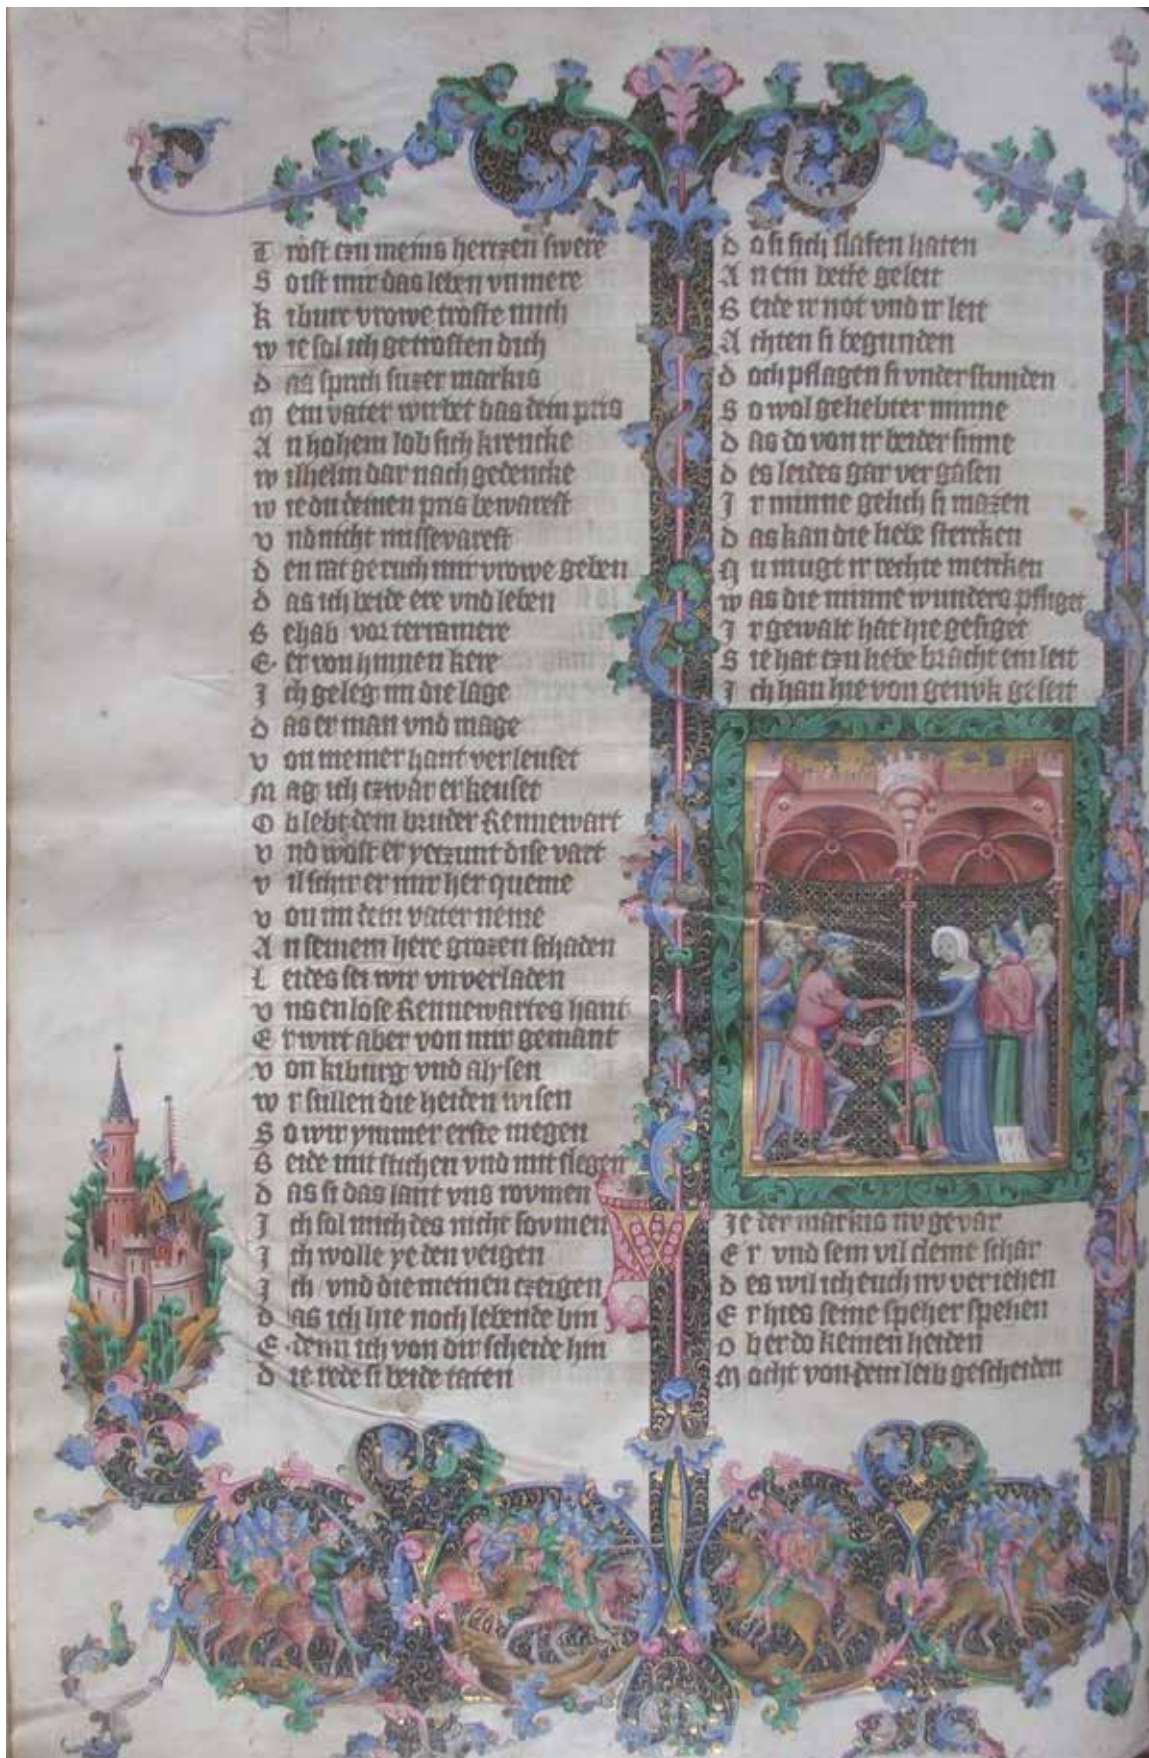 T rost tzu meins hertzen swere
S o ist mir das leben vnmere
K iburc vrowe troste mich
W ie sol ich getrosten dich
D as sprich suzer markis
M ein vater wirbet das dein pris
A n hohem lob sich krencke
W ilhelm dar nach gedencke
W ie du deinen pris bewarest
V nd nicht missevarest
D en rat geruch mir vrowe geben
D as ich beide ere vnd leben
B ehab vor terramere
E er von hinnen kere
I ch geleg im die lage
D as er man vnd mage
V on meiner hant verleuset
M ag ich tzwar erkeuset
O b lebt dein bruder Rennewart
V nd wost er yetzunt dise vart
V il schir er mir her queme
V on im dein vater neme
A n seinem here grozen schaden
L eides sei wir vnverladen
V ns enlose Rennewartes hant
E r wirt aber von mir gemant
V on kiburg vnd alysen
W r sullen die heiden wisen
S o wir ymmer erste megen
B eide mit stichen vnd mit slegen
D as si das lant vns roumen
I ch sol mich des nicht soumen
I ch wolle ye den veigen
I ch vnd die meinen tzeigen
D as ich hie noch lebende bin
E denn ich von dir scheide hin
D ie rede si beide taten
D o si sich slafen haten
A n ein bette geleit
B eide ir not vnd ir leit
A chten si begunden
D och pflagen si vnder stunden
S o wol geliebter minne
D as do von ir beider sinne
D es leides gar vergasen
I r minne gelich si mazen
D as kan die liebe stercken
N u mugt ir rechte mercken
W as die minne wunders pfliget
I r gewalt hat hie gesiget
S ie hat tzu liebe bracht ein leit
I ch han hie von genvk geseit
W ie der markis nv gevar
E r vnd sein vil cleine schar
D es wil ich euch nv veriehen
E r hies seine speher spehen
O b er do keinen heiden
M ocht von dem leib gescheiden